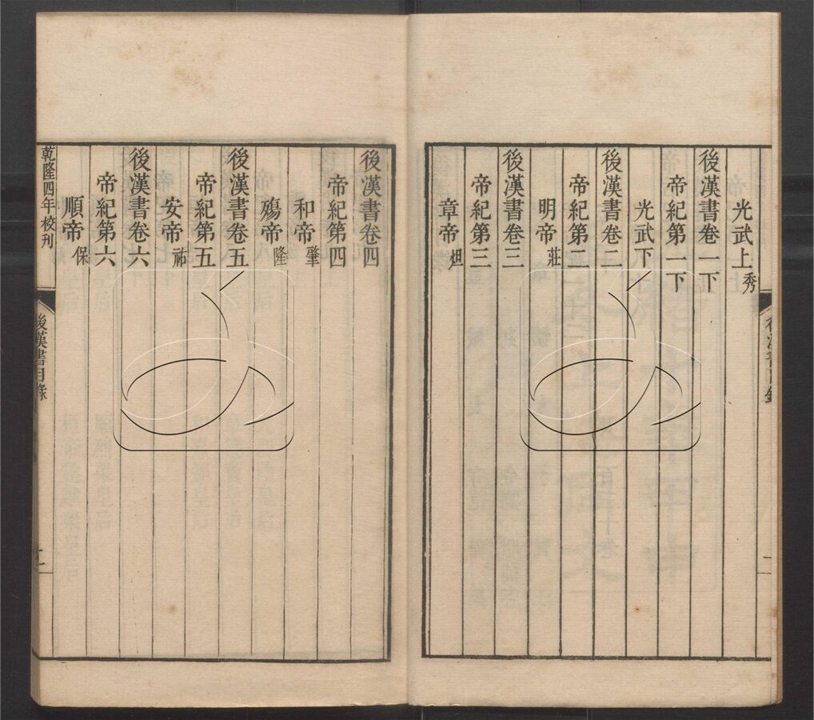 光武上秀
後漢書卷一下
帝紀第一下
光武下
後漢書卷二
帝紀第二
明帝莊
後漢書卷三
帝紀第三
章帝炟
後漢書卷四
帝紀第四
和帝肇
殤帝隆
後漢書卷五
帝紀第五
安帝祜
後漢書卷六
帝紀第六
順帝保
乾隆四年校刊
後漢書目錄